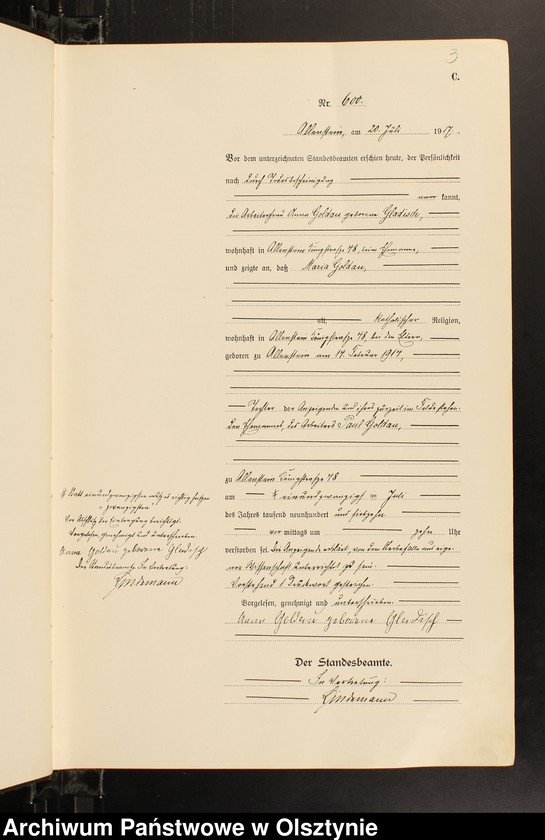 3
C.
Nr. 600.
Allenstein, am 20. Juli 1917.
Vor dem unterzeichneten Standesbeamten erschien heute, der Persönlichkeit
nach durch Trau
kannt,
die Arbeiterfrau Anna Goldau geborene Gladisch,
wohnhaft in Allenstein Königstraße 78, beim Ehemanne,
und zeigte an, daß Maria Goldau,
alt, katholischer Religion,
wohnhaft in Allenstein Königstraße 78, bei den Eltern,
geboren zu Allenstein am 17. Februar 1917,
Tochter der Anzeigenden und ihres zurzeit im Felde stehen-
den Ehemannes, des Arbeiters Paul Goldau,
zu Allenstein Königstraße 78
am # einundzwanzigsten Juli
des Jahres tausend neunhundert und siebzehn
vor mittags um zehn Uhr
verstorben sei. Die Anzeigende erklärt, von dem Sterbefalle aus eige-
ner Wissenschaft unterrichtet zu sein.
Vorstehend 1 Druckwort gestrichen.
Vorgelesen, genehmigt und unterschrieben.
Anna Goldau geborene Gladisch
Der Standesbeamte.
In Vertretung:
Lindemann
# Statt einundzwanzigsten muß es richtig heißen
zwanzigsten
Vor Abschluß der Eintragung berichtigt.
Vorgelesen genehmigt und unterschrieben.
Anna Goldau geborene Gladisch
Der Standesbeamte. In Vertretung:
Lindemann
Archiwum Państwowe w Olsztynie